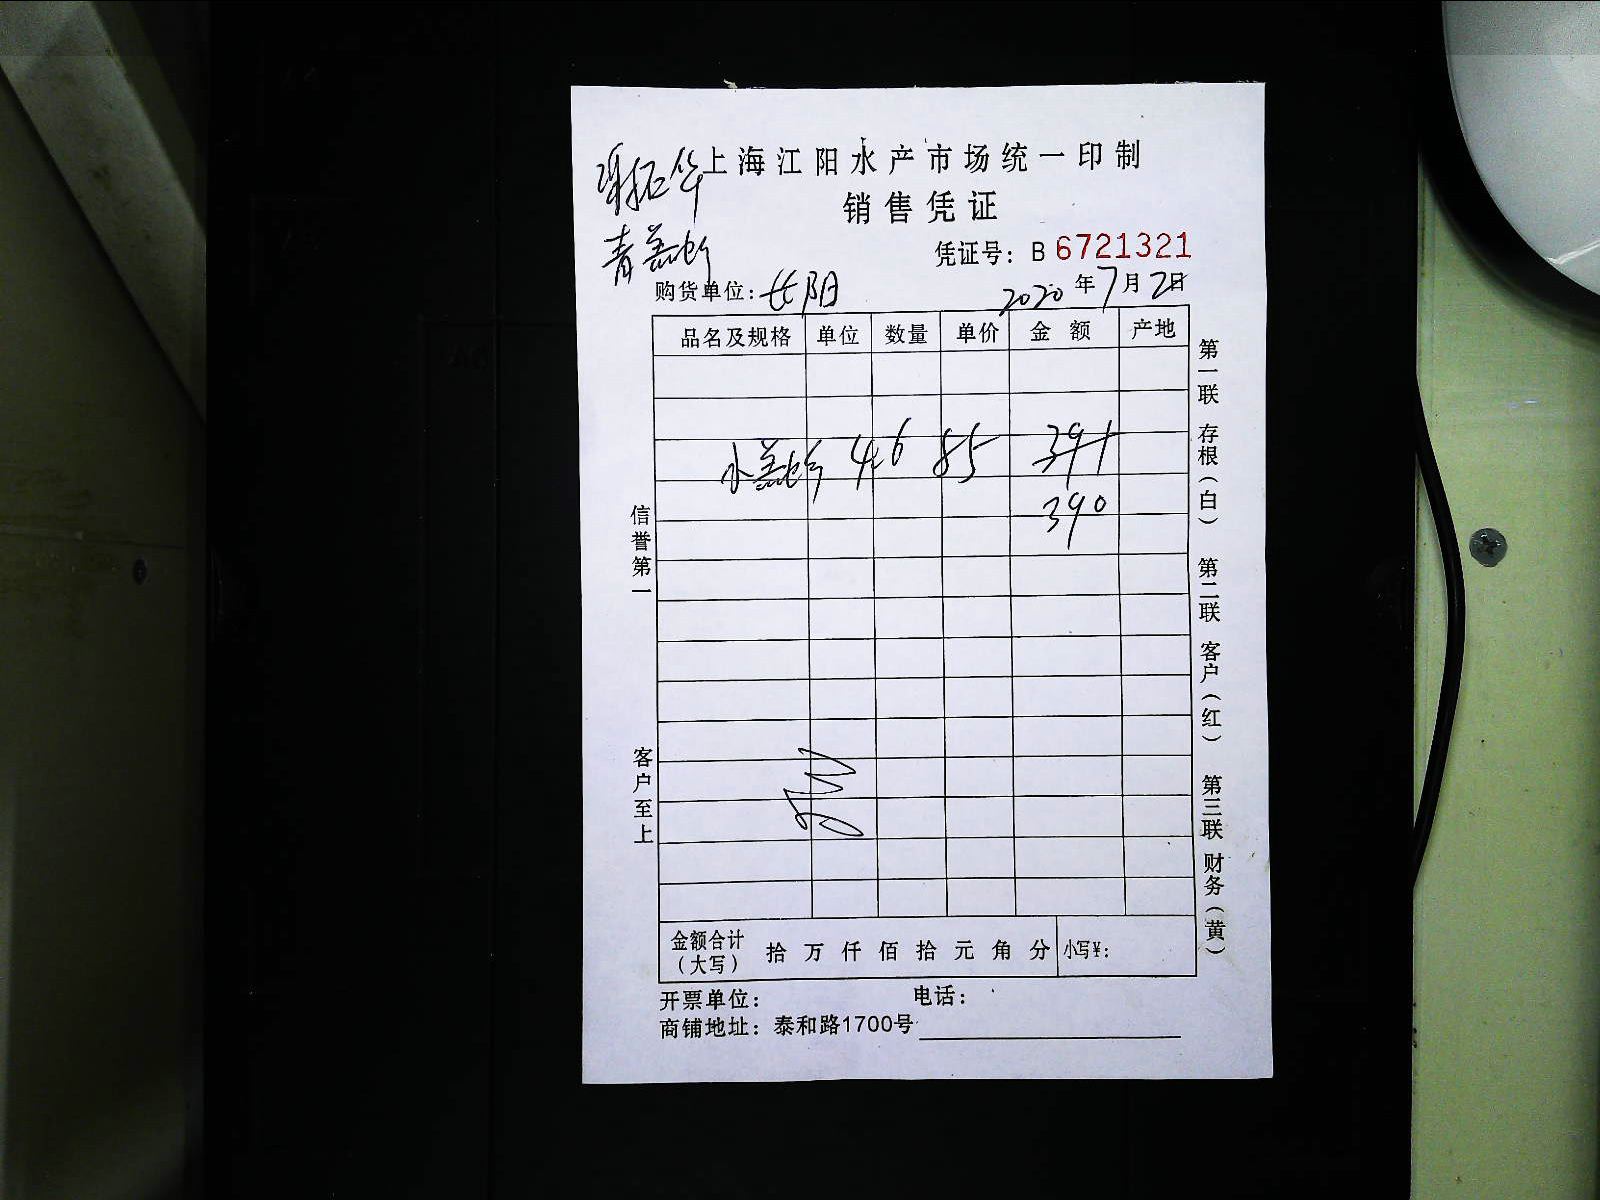 上海江阳水产市场统一印制
销售凭证
凭证号：B 6721321
购货单位：长阳 2020年7月2日
品名及规格 单位 数量 单价 金额 产地
4.6 85 391
390
信誉第一
客户至上
第一联 存根（白） 第二联 客户（红） 第三联 财务（黄）
金额合计（大写） 拾 万 仟 佰 拾 元 角 分 小写¥：
开票单位： 电话：
商铺地址：泰和路1700号